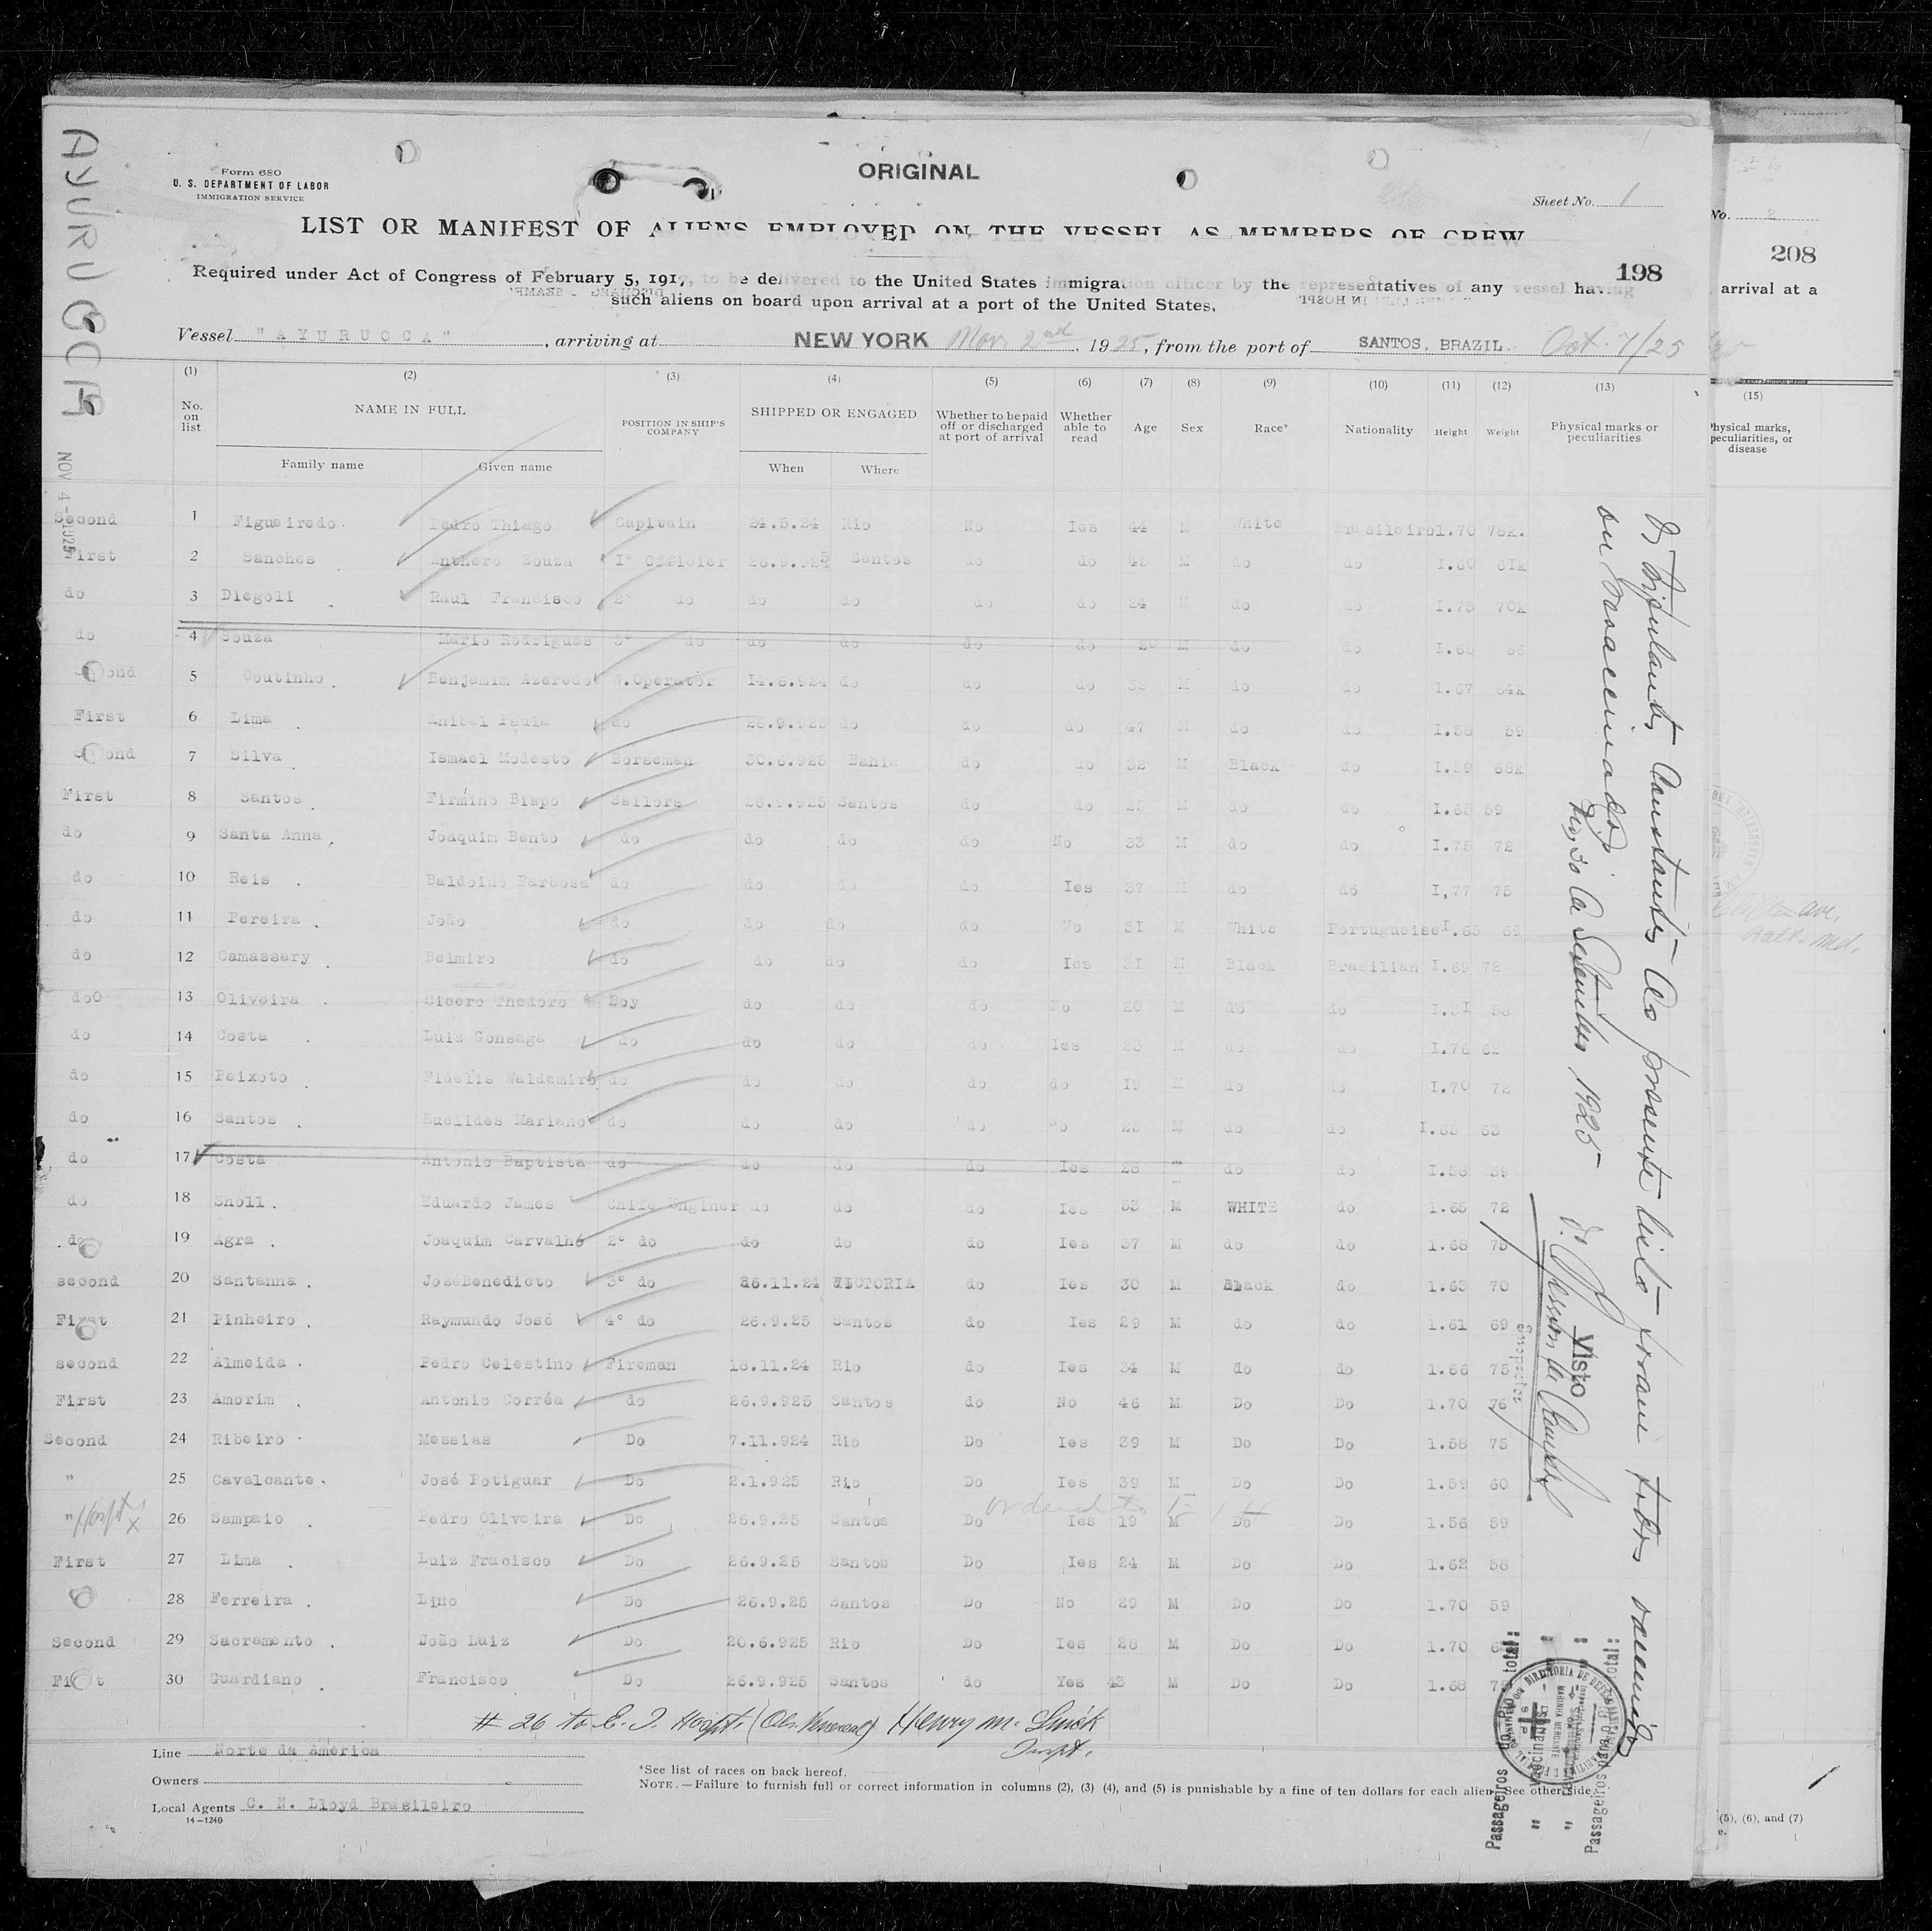 AYURUOCA
NOV 4 - 1925
Form 680
U. S. DEPARTMENT OF LABOR
IMMIGRATION SERVICE
ORIGINAL
Sheet No. 1
LIST OR MANIFEST OF ALIENS EMPLOYED ON THE VESSEL AS MEMBERS OF CREW
198
Required under Act of Congress of February 5, 1917, to be delivered to the United States immigration officer by the representatives of any vessel having
such aliens on board upon arrival at a port of the United States.
Vessel "AYURUOCA", arriving at NEW YORK Nov. 2nd, 1925, from the port of SANTOS, BRAZIL. Oct. 7/25
(1) (2) (3) (4) (5) (6) (7) (8) (9) (10) (11) (12) (13)
No. on list NAME IN FULL POSITION IN SHIP'S COMPANY SHIPPED OR ENGAGED Whether to be paid off or discharged at port of arrival Whether able to read Age Sex Race* Nationality Height Weight Physical marks or peculiarities
Family name Given name When Where
Second 1 Figueiredo. Pedro Thiago Capitain 24.5.24 Rio No Ies 44 M White Brasileiro 1.70 78k.
First 2 Sanches . Anthero Souza I° Officier 26.9.925 Santos do do 45 M do do I.60 61k
do 3 Diegoli . Raul Francisco 2° do do do do do 24 M do do I.75 70k
do 4 Souza Mario Rodrigues 3° do do do do do 20 M do do I.65 65
Second 5 Coutinho . Benjamim Azeredo W.Operator 14.6.924 do do do 32 M do do I.67 64k
First 6 Lima . Anibal Paula do 26.9.925 do do do 47 M do do I.58 59
Second 7 Silva . Ismael Modesto Borseman 30.6.925 Bahia do do 32 M Black do I.59 68k
First 8 Santos . Firmino Bispo Sailors 26.9.925 Santos do do 25 M do do I.65 59
do 9 Santa Anna . Joaquim Bento do do do do No 33 M do do I.75 72
do 10 Reis . Baldoino Barbosa do do do do Ies 37 M do do I,77 75
do 11 Pereira . João do do do do No 51 M White Portugueise I.65 69
do 12 Camassary . Belmiro do do do do Ies 31 M Black Brasilian I.69 72
do 13 Oliveira . Cicero Thedoro Boy do do do No 20 M do do I.51 58
do 14 Costa . Luiz Gonsaga do do do do Ies 23 M do do I.76 62
do 15 Peixoto . Fidelis Waldemiro do do do do do 19 M do do I.70 72
do 16 Santos . Euclides Mariano do do do do No 25 M do do I.65 63
do 17 Costa Antonio Baptista do do do do Ies 28 m do do I.58 59
do 18 Sholl . Eduardo James Chife Enginer do do do Ies 53 M WHITE do 1.65 72
do 19 Agra . Joaquim Carvalho 2° do do do do Ies 37 M do do 1.68 75
second 20 Santanna . JoséBenedicto 3° do 26.11.24 VICTORIA do Ies 30 M Black do 1.63 70
First 21 Pinheiro . Raymundo José 4° do 26.9.25 Santos do Ies 29 M do do 1.61 69
second 22 Almeida . Pedro Celestino Fireman 18.11.24 Rio do Ies 34 M do do 1.66 75
First 23 Amorim . Antonio Corréa do 26.9.925 Santos do No 46 M Do Do 1.70 76
Second 24 Ribeiro . Messias Do 7.11.924 Rio Do Ies 39 M Do Do 1.58 75
" 25 Cavalcante. José Potiguar Do 2.1.925 Rio Do Ies 39 M Do Do 1.59 60
" Hospt X 26 Sampaio . Pedro Oliveira Do 26.9.25 Santos Do Ies 19 M Do Do 1.56 59
First 27 Lima . Luiz Fracisco Do 26.9.25 Santos Do Ies 24 M Do Do 1.62 58
28 Ferreira . Lino Do 26.9.25 Santos Do No 29 M Do Do 1.70 59
Second 29 Sacramento . João Luiz Do 20.6.925 Rio Do Ies 28 M Do Do 1.70
First 30 Guardiano . Francisco Do 26.9.925 Santos do Yes 43 M Do Do 1.68
# 26 to E. I. Hospt. (Obs. Venereal) Henry M.
Inspt.
Line Norte da America
Owners
Local Agents C. N. Lloyd Brasileiro
14—1240
*See list of races on back hereof.
NOTE.—Failure to furnish full or correct information in columns (2), (3) (4), and (5) is punishable by a fine of ten dollars for each alien. See other side.
Os tripulantes constantes da presente lista foram todos vaccinados
ou revaccinados.
Rio, 30 de Setembro 1925
Visto
Inspector
Passageiros do Rio total:
" vaccinados
Passageiros para o Rio total:
No. 2
208
arrival at a
(15)
Physical marks, peculiarities, or disease
ave.
Balt. Md.
(5), (6), and (7)